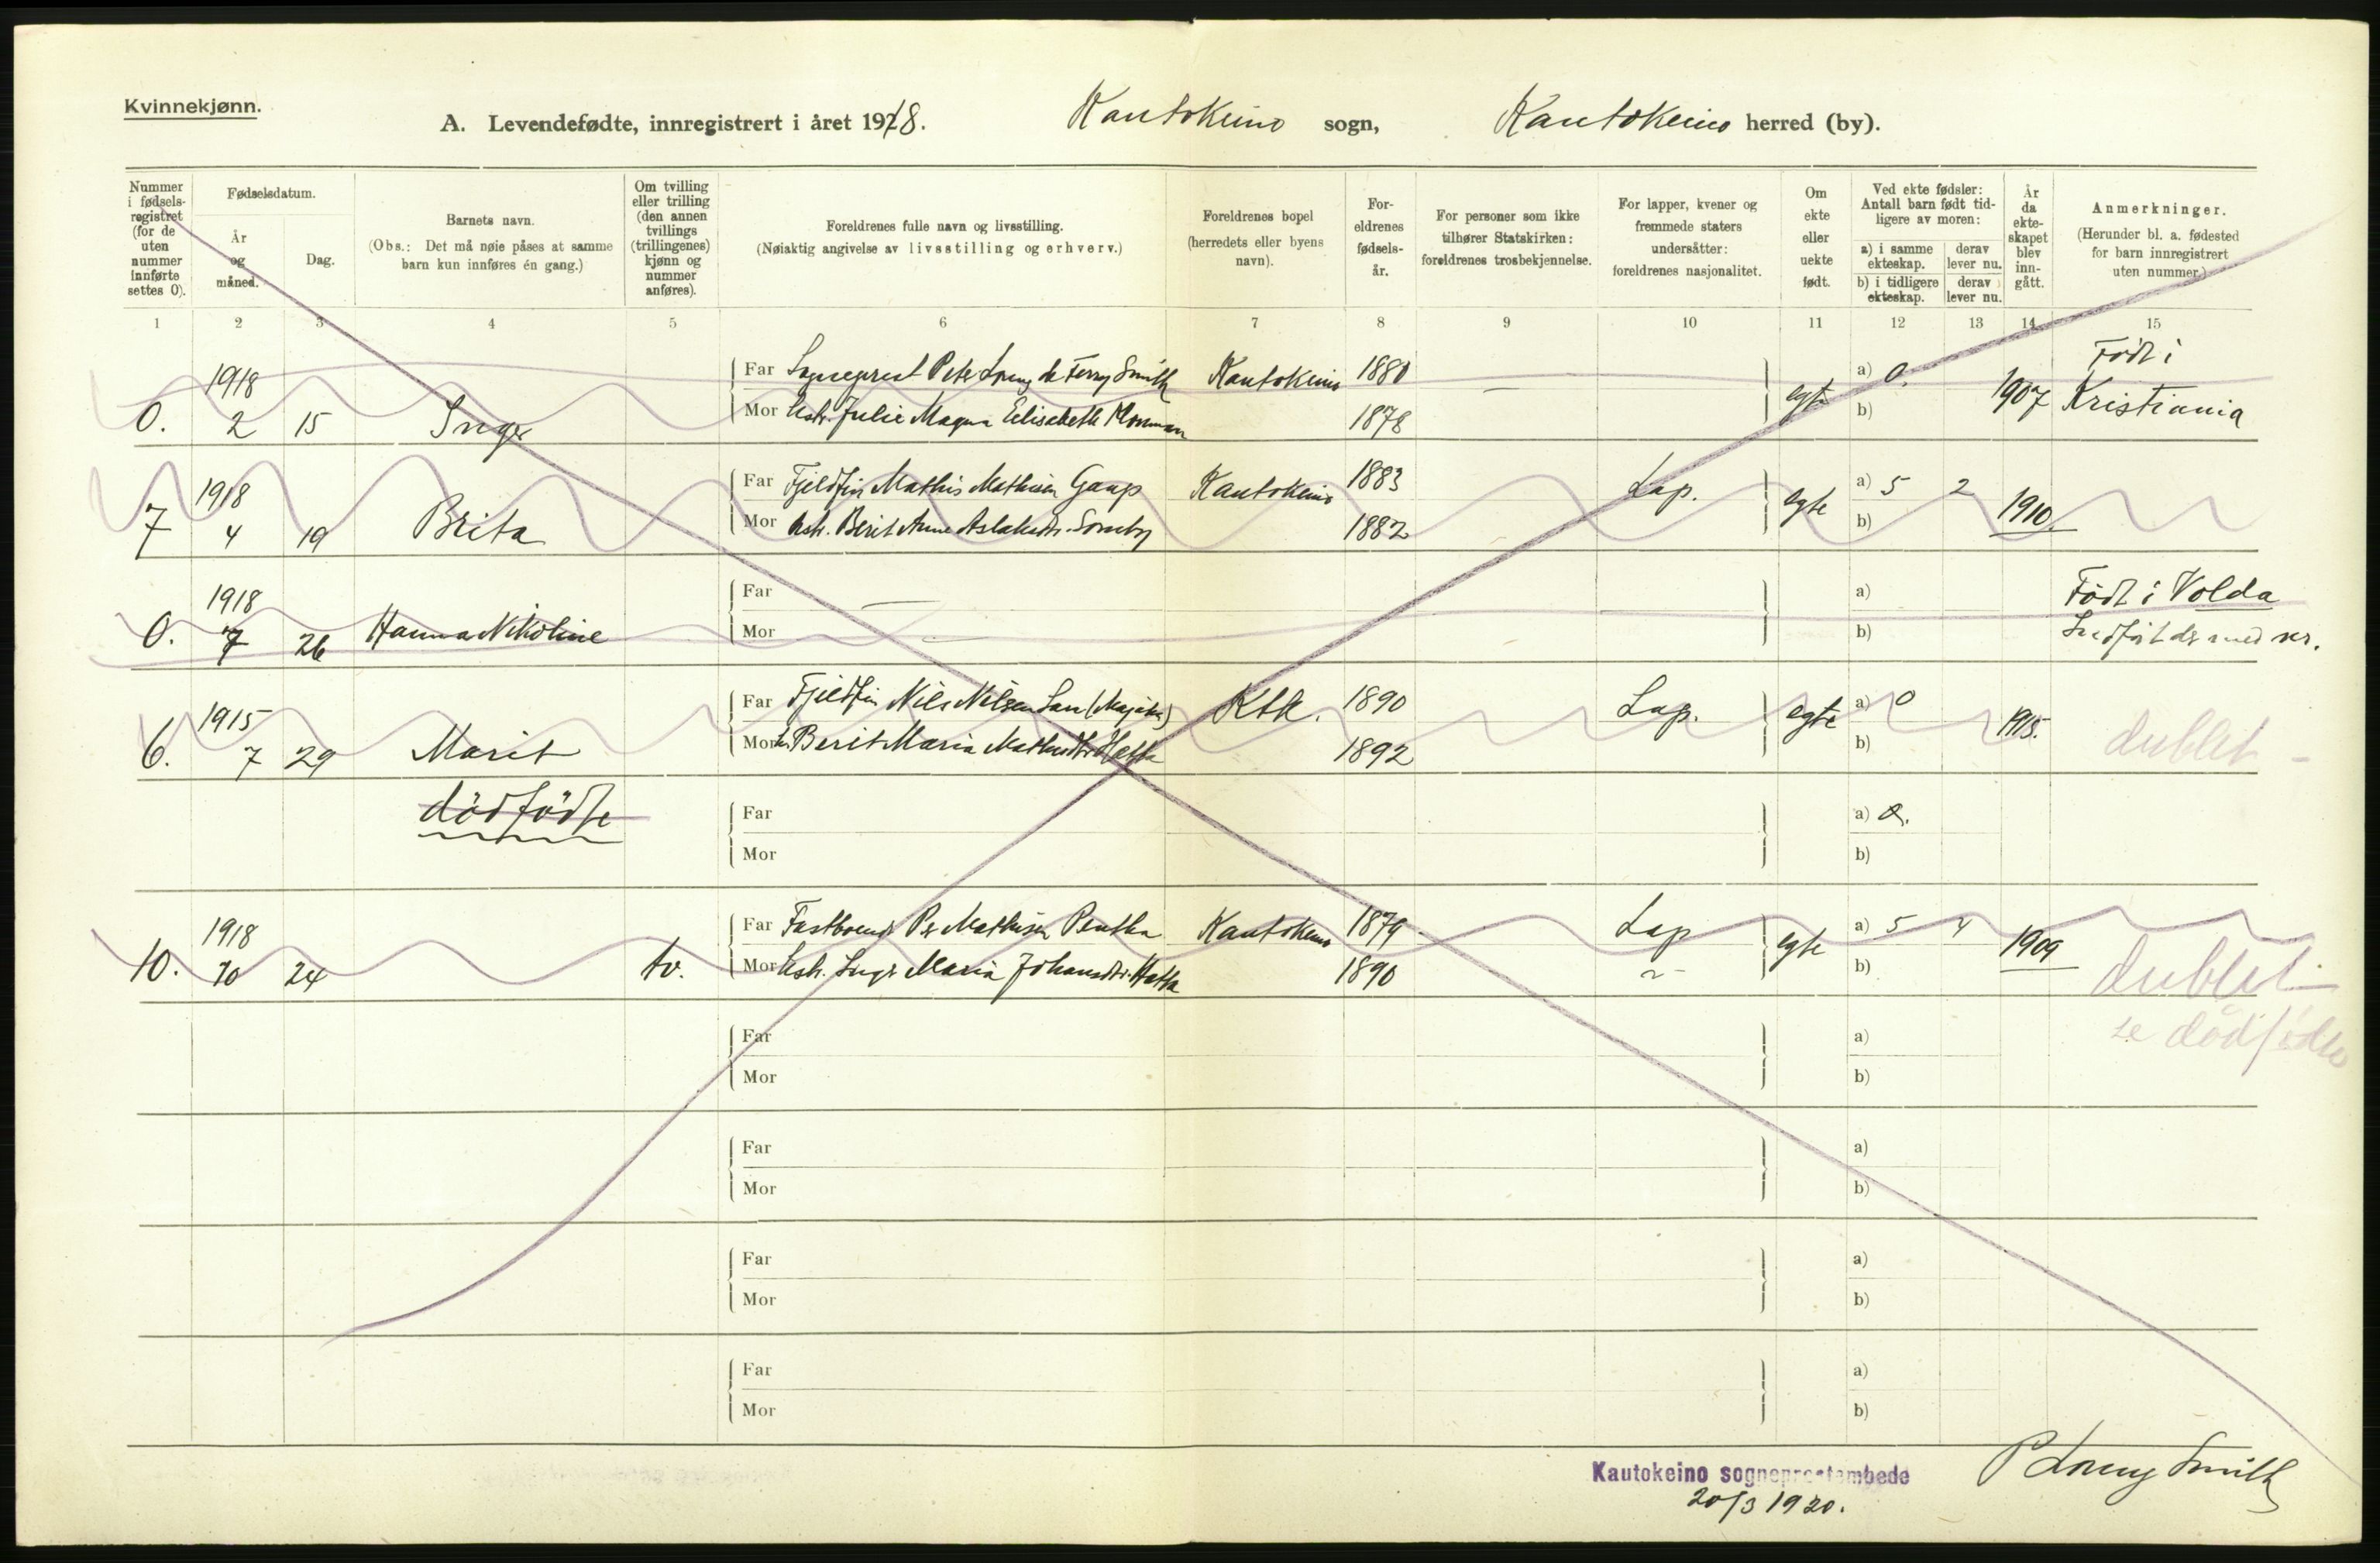 Kvinnekjønn.
A. Levendefødte, innregistrert i året 1918. Kautokeino sogn, Kautokeino herred (by).
Nummer i fødsels-registret (for de uten nummer innførte settes 0).
Fødselsdatum.
År og måned.
Dag.
Barnets navn.
(Obs.: Det må nøie påses at samme barn kun innføres én gang.)
Om tvilling eller trilling (den annen tvillings (trillingenes) kjønn og nummer anføres).
Foreldrenes fulle navn og livsstilling.
(Nøiaktig angivelse av livsstilling og erhverv.)
Foreldrenes bopel (herredets eller byens navn).
For-eldrenes fødsels-år.
For personer som ikke tilhører Statskirken: foreldrenes trosbekjennelse.
For lapper, kvener og fremmede staters undersåtter: foreldrenes nasjonalitet.
Om ekte eller uekte født.
Ved ekte fødsler: Antall barn født tid-ligere av moren:
a) i samme ekteskap.
derav lever nu.
b) i tidligere ekteskap.
derav lever nu.
År da ekte-skapet blev inn-gått.
Anmerkninger.
(Herunder bl. a. fødested for barn innregistrert uten nummer.)
1 2 3 4 5 6 7 8 9 10 11 12 13 14 15
1918 Far Sogneprest Peter Lorenz de Ferry Smith Kautokeino 1880 — a) 0. Født i
0. 2 15 Inger Mor Hstr. Julie Magna Elisabeth 1878 egte b) 1907 Kristiania
1918 Far Fjeldfin Mathis Mathisen Gaup Kautokeino 1883 Lap. a) 5 2
7 4 19 Brita Mor Hstr. Berit Anne Aslaksdtr. Somby 1882 egte b) 1910.
1918 Far — a) Født i Volda
0. 7 26 Hanna Nikoline Mor b) Indført der med nr.
1915 Far Fjeldfin Nils Nilsen Ktk. 1890 Lap. egte a) 0 1915.
6. 7 29 Marit Mor Berit Maria Mathisdtr. Hætta 1892 b) dublet
dödfödte Far a) 0.
Mor b)
1918 Far Fastboende Per Mathisen Pentha Kautokeino 1879 Lap a) 5 4
10. 10 24 tv. Mor Hstr. Inger Maria Johansdtr. Hætta 1890 egte b) 1909 dublet
Far a) se dödfödte
Mor b)
Far a)
Mor b)
Far a)
Mor b)
Far a)
Mor b)
Kautokeino sogneprestembede
20/3 1920.
P Lorenz Smith